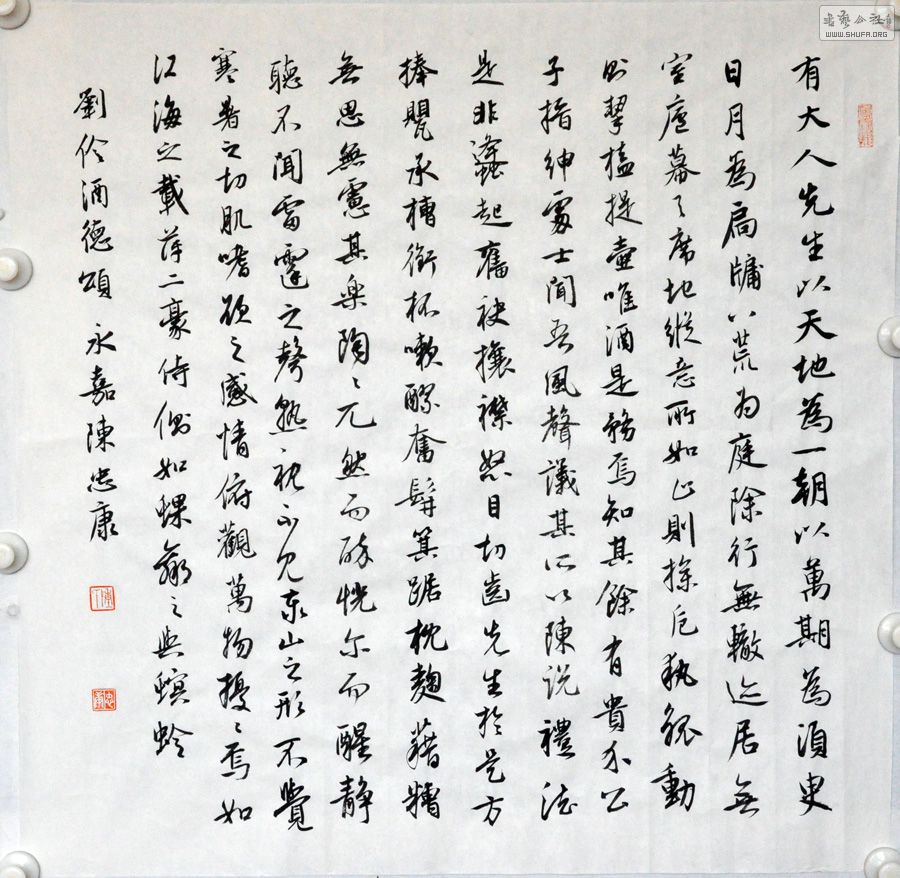 有大人先生以天地為一朝以萬期為須臾
日月為扃牖八荒为庭除行無轍迹居無
室廬幕天席地縱意所如止則操卮執觚動
則挈榼提壺唯酒是務焉知其餘有貴介公
子搢紳處士聞吾風聲議其所以陳說禮法
是非蠭起奮袂攘襟怒目切齒先生於是方
捧甖承槽銜杯嗽醪奮髯箕踞枕麴藉糟
無思無慮其樂陶〻兀然而醉恍尔而醒靜
聽不聞雷霆之聲熟視不見泰山之形不覺
寒暑之切肌嗜欲之感情俯觀萬物擾〻焉如
江海之載萍二豪侍側如蜾蠃之與螟蛉
劉伶酒德頌 永嘉陳忠康
書藝公社
WWW.SHUFA.ORG